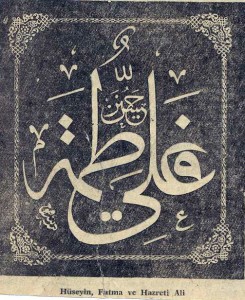 حسين
علي فاطمة
م
ع
Hüseyin, Fatma ve Hazreti Ali